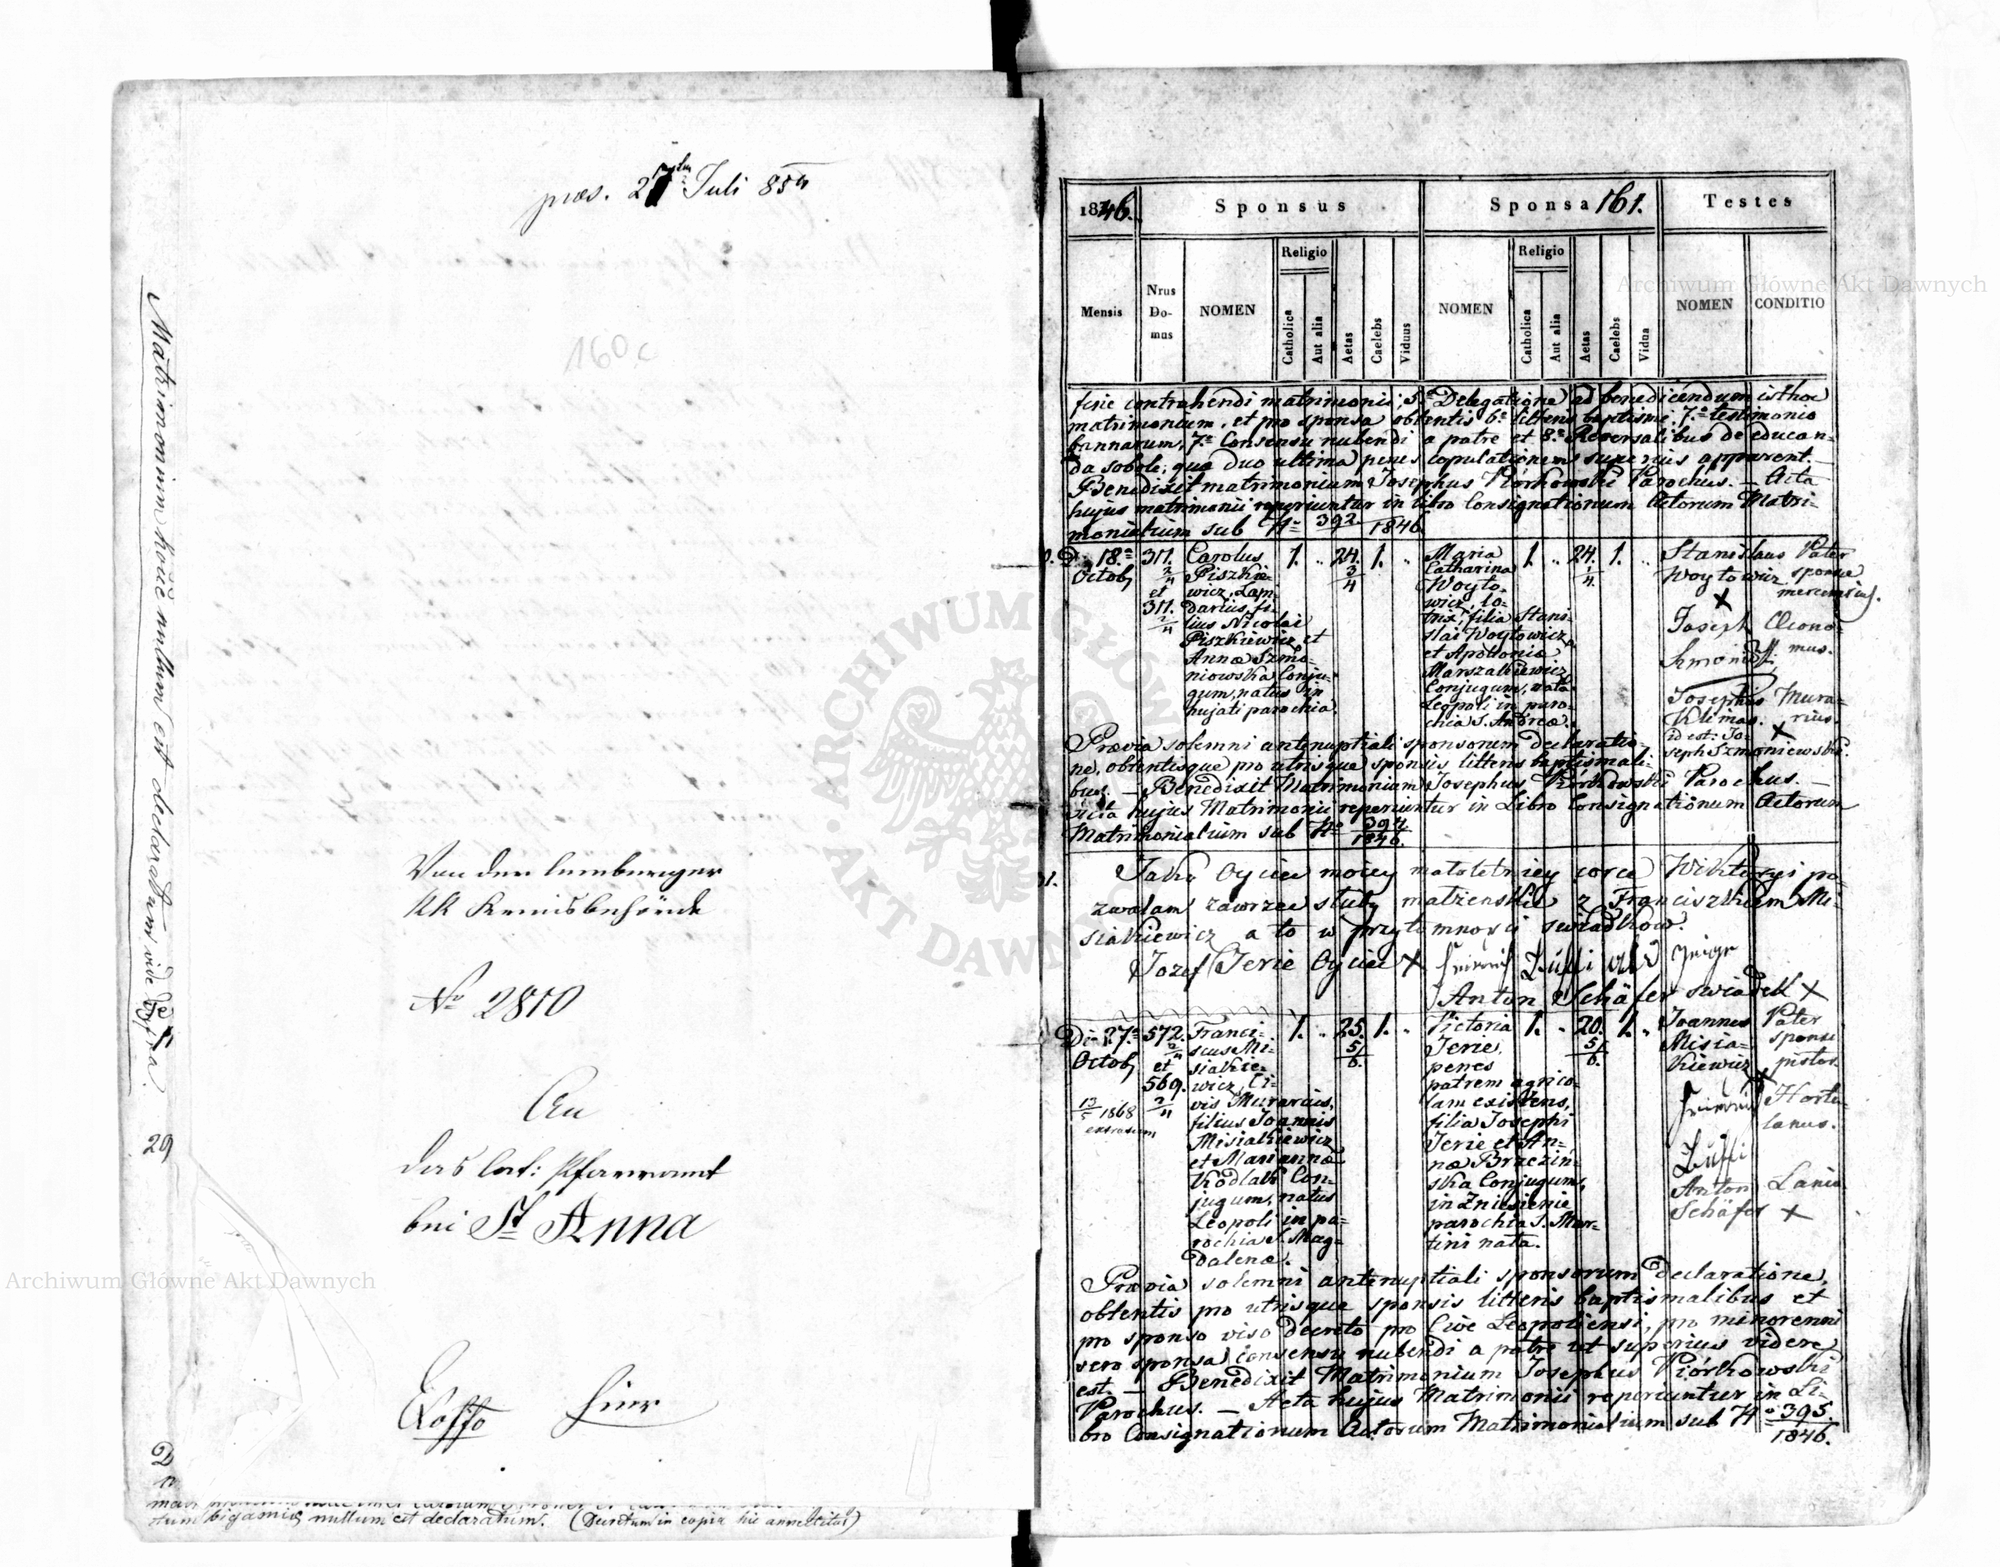 præs. 27 Juli 854
160c
Matrimonium hocce nullum est declaratum vide
29
Von der Lemberger
KK Kreisbehörde
No 2810
An
das lat: Pfarramt
bei St Anna
Exoffo hier
tum bigamis nullum est declaratum. (Decretum in copia hic annectitur)
1846. Sponsus Sponsa 161. Testes
Religio Religio
Mensis Nrus Domus NOMEN Catholica Aut alia Aetas Caelebs Viduus NOMEN Catholica Aut alia Aetas Caelebs Vidua NOMEN CONDITIO
contrahendi matrimonii; 5o Delegatione ad benedicendum isthoc
matrimonium, et pro sponsa obtentis 6o litteris baptismi, 7o testimonio
bannorum, 7o Consensu nubendi a patre et 8o Reversalibus de educan=
da sobole; quæ duo ultima penes copulationem superius apparent.
Benedixit matrimonium Josephus Piórkowski Parochus. — Acta
hujus matrimonii reperiuntur in libro Consignationum Actorum Matri=
monialium sub No 392/1846
D. 18a
Octob
311.
2/4
et
311.
2/4
Carolus
Piszkie=
wicz, Lam=
darius, fi=
lius Nicolai
Piszkiewicz et
Annæ Szmo=
niowska Conju=
gum, natus in
hujati parochia.
1. „ 24. 3/4 1. „
Maria
Catharina
Woyto=
wicz, lo=
trix, filia Stanis=
slai Woytowicz
et Apolloniæ
Marszalkiewicz
Conjugum, nata
Leopoli in paro=
chia S. Andreæ.
1. „ 24. 1/4. 1. „
Stanislaus Pater
Woytowicz sponsæ
x
Joseph Oecono=
mus.
Josephus Mura=
Klimas. rius.
id est: Jo= x
seph Szmoniewski.
Prævia solemni antenuptiali sponsorum declaratio=
ne, obtentisque pro utrisque sponsis litteris baptismali=
bus. — Benedixit Matrimonium Josephus Piórkowski Parochus. —
Acta hujus Matrimonii reperiuntur in Libro Consignationum Actorum
Matrimonialium sub No 394/1846.
Jako Oyciec moiey małoletniey corce Wiktoryi po=
zwalam zawrzec sluby małżenskie z Franciszkiem Mi=
siakiewicz a to w przytomnosci swiadkow.
Jozef Jerie Oyciec x Heinrich
Anton Schäfer swiadek x
Die 27a
Octob
13/5 1868
extratum
572.
2/4
et
569.
2/4
Franci=
scus Mi=
siakie=
wicz, Ci=
vis Murarius,
filius Joannis
Misiakiewicz
et Mariannæ
Kodlak Con=
jugum, natus
Leopoli in pa=
rochia S. Mag=
dalenæ.
1. „ 25. 5/6. 1. „
Victoria
Jerie,
penes
patrem agrico=
lam existens,
filia Josephi
Jerie et An=
næ Brzeziń=
ska Conjugum,
in Zniesienie
parochia S. Mar=
tini nata.
1. „ 20. 5/6. 1. „
Joannes Pater
Misia= sponsi
kiewicz pistor.
x
Heinrich Hortu=
lanus.
Anton Lanio
Schäfer x
Prævia solemni antenuptiali sponsorum declaratione,
obtentis pro utrisque sponsis litteris baptismalibus et
pro sponso viso decreto pro Cive Leopoliensi, pro minorenni
vero sponsa consensu nubendi a patre ut superius videre
est. — Benedixit Matrimonium Josephus Piórkowski
Parochus. — Acta hujus Matrimonii reperiuntur in Li=
bro Consignationum Actorum Matrimonialium sub No 395./1846.
Archiwum Główne Akt Dawnych
Archiwum Główne Akt Dawnych
ARCHIWUM GŁÓWNE AKT DAWNYCH